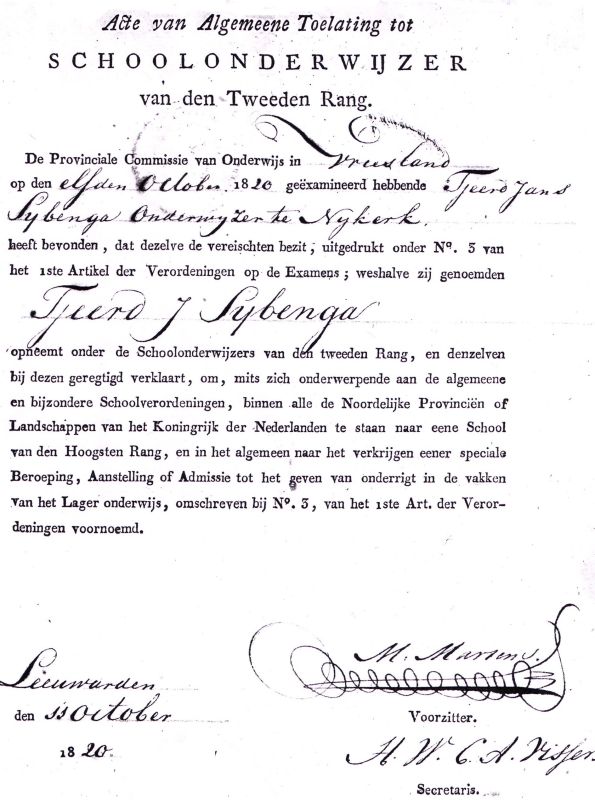 Acte van Algemeene Toelating tot
SCHOOLONDERWIJZER
van den Tweeden Rang.
De Provinciale Commissie van Onderwijs in Vriesland
op den elfden October 1820 geëxamineerd hebbende Tjeerd Jans
Sybenga Onderwyzer te Nykerk,
heeft bevonden, dat dezelve de vereischten bezit, uitgedrukt onder Nº. 3 van
het 1ste Artikel der Verordeningen op de Examens; weshalve zij genoemden
Tjeerd J Sybenga
opneemt onder de Schoolonderwijzers van den tweeden Rang, en denzelven
bij dezen geregtigd verklaart, om, mits zich onderwerpende aan de algemeene
en bijzondere Schoolverordeningen, binnen alle de Noordelijke Provinciën of
Landschappen van het Koningrijk der Nederlanden te staan naar eene School
van den Hoogsten Rang, en in het algemeen naar het verkrijgen eener speciale
Beroeping, Aanstelling of Admissie tot het geven van onderrigt in de vakken
van het Lager onderwijs, omschreven bij Nº. 3, van het 1ste Art. der Veror-
deningen voornoemd.
M. Martens.
Leeuwarden
den 11 October
Voorzitter.
1820.
H. W. C. A. Visser.
Secretaris.